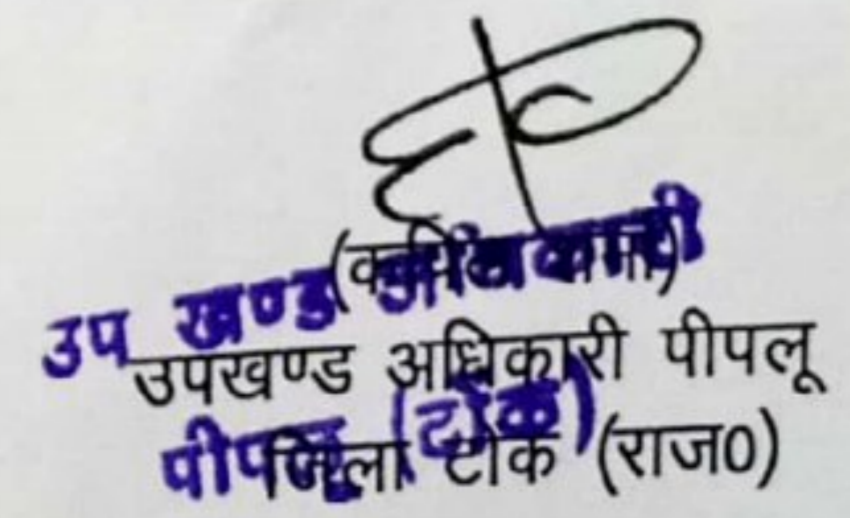 उप खण्ड अधिकारी
(कपिल शर्मा)
उपखण्ड अधिकारी पीपलू
पीपलू (टोंक)
जिला टोंक (राज0)